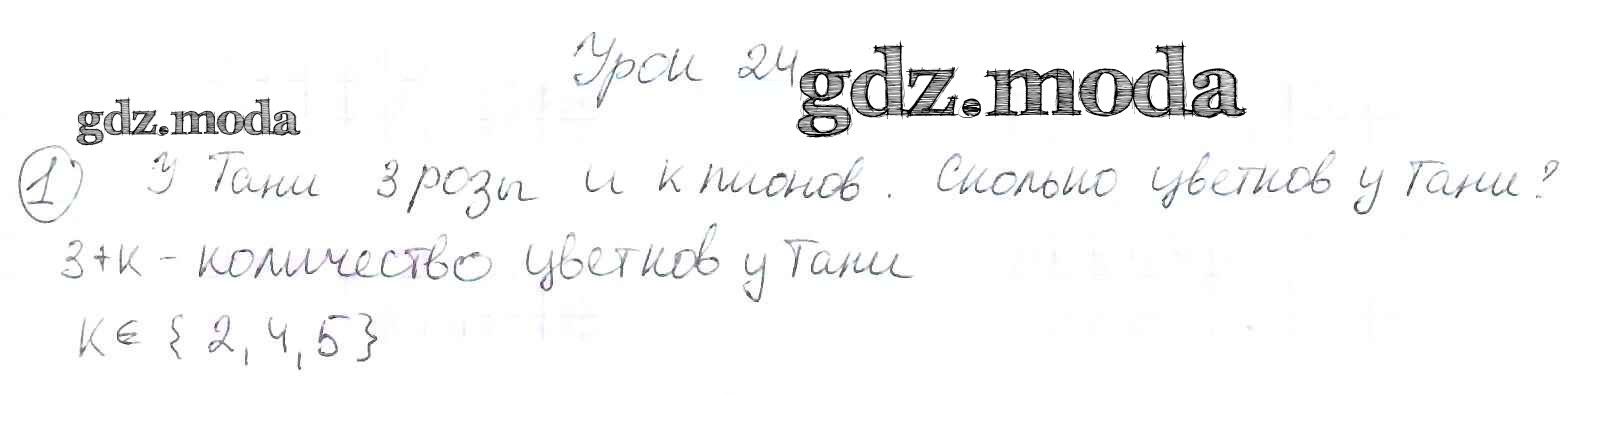 Урок 24 gdz.moda
gdz.moda
1 У Тани 3 розы и к пионов. Сколько цветков у Тани?
3+к - количество цветков у Тани
К∈ {2,4,5}